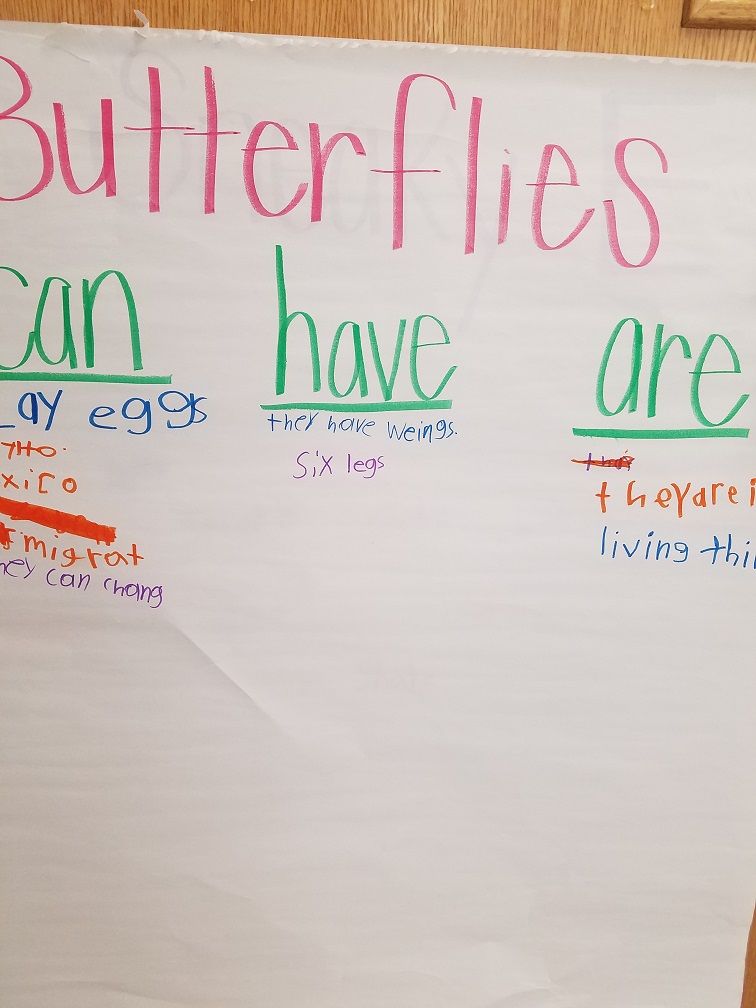 Butterflies
can
have
are
Lay eggs
xico
migrat
hey can chang
they have weings.
six legs
they are i
living thi